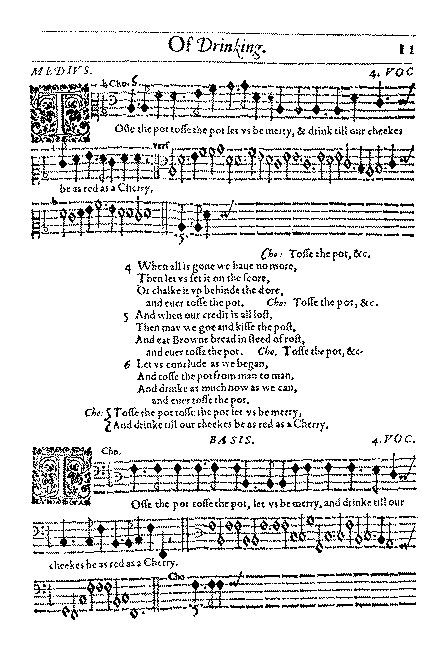 Of Drinking. 11
MEDIVS. 4. VOC
Cho.
TOsse the pot tosse the pot let vs be merry, & drink till our cheekes
vers
be as red as a Cherry,
Cho: Tosse the pot, &c.
4 When all is gone we haue no more,
Then let vs set it on the score,
Or chalke it vp behinde the dore,
and euer tosse the pot. Cho: Tosse the pot, &c.
5 And when our credit is all lost,
Then may we goe and kisse the post,
And eat Browne bread in steed of rost,
and euer tosse the pot. Cho. Tosse the pot, &c.
6 Let vs conclude as we began,
And tosse the pot from man to man,
And drinke as much now as we can,
and euer tosse the pot.
Cho: Tosse the pot tosse the pot let vs be merry,
And drinke till our cheekes be as red as a Cherry.
BASIS. 4. VOC.
Cho.
TOsse the pot tosse the pot, let vs be merry, and drinke till our
cheekes be as red as a Cherry.
Cho